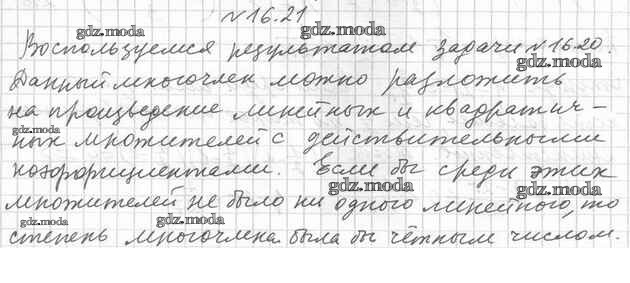 №16.21
Воспользуемся результатом задачи №16.20.
Данный многочлен можно разложить
на произведение линейных и квадратич-
ных множителей с действительными
коэффициентами. Если бы среди этих
множителей не было ни одного линейного, то
степень многочлена была бы чётным числом.
gdz.moda
gdz.moda
gdz.moda
gdz.moda
gdz.moda
gdz.moda
gdz.moda
gdz.moda